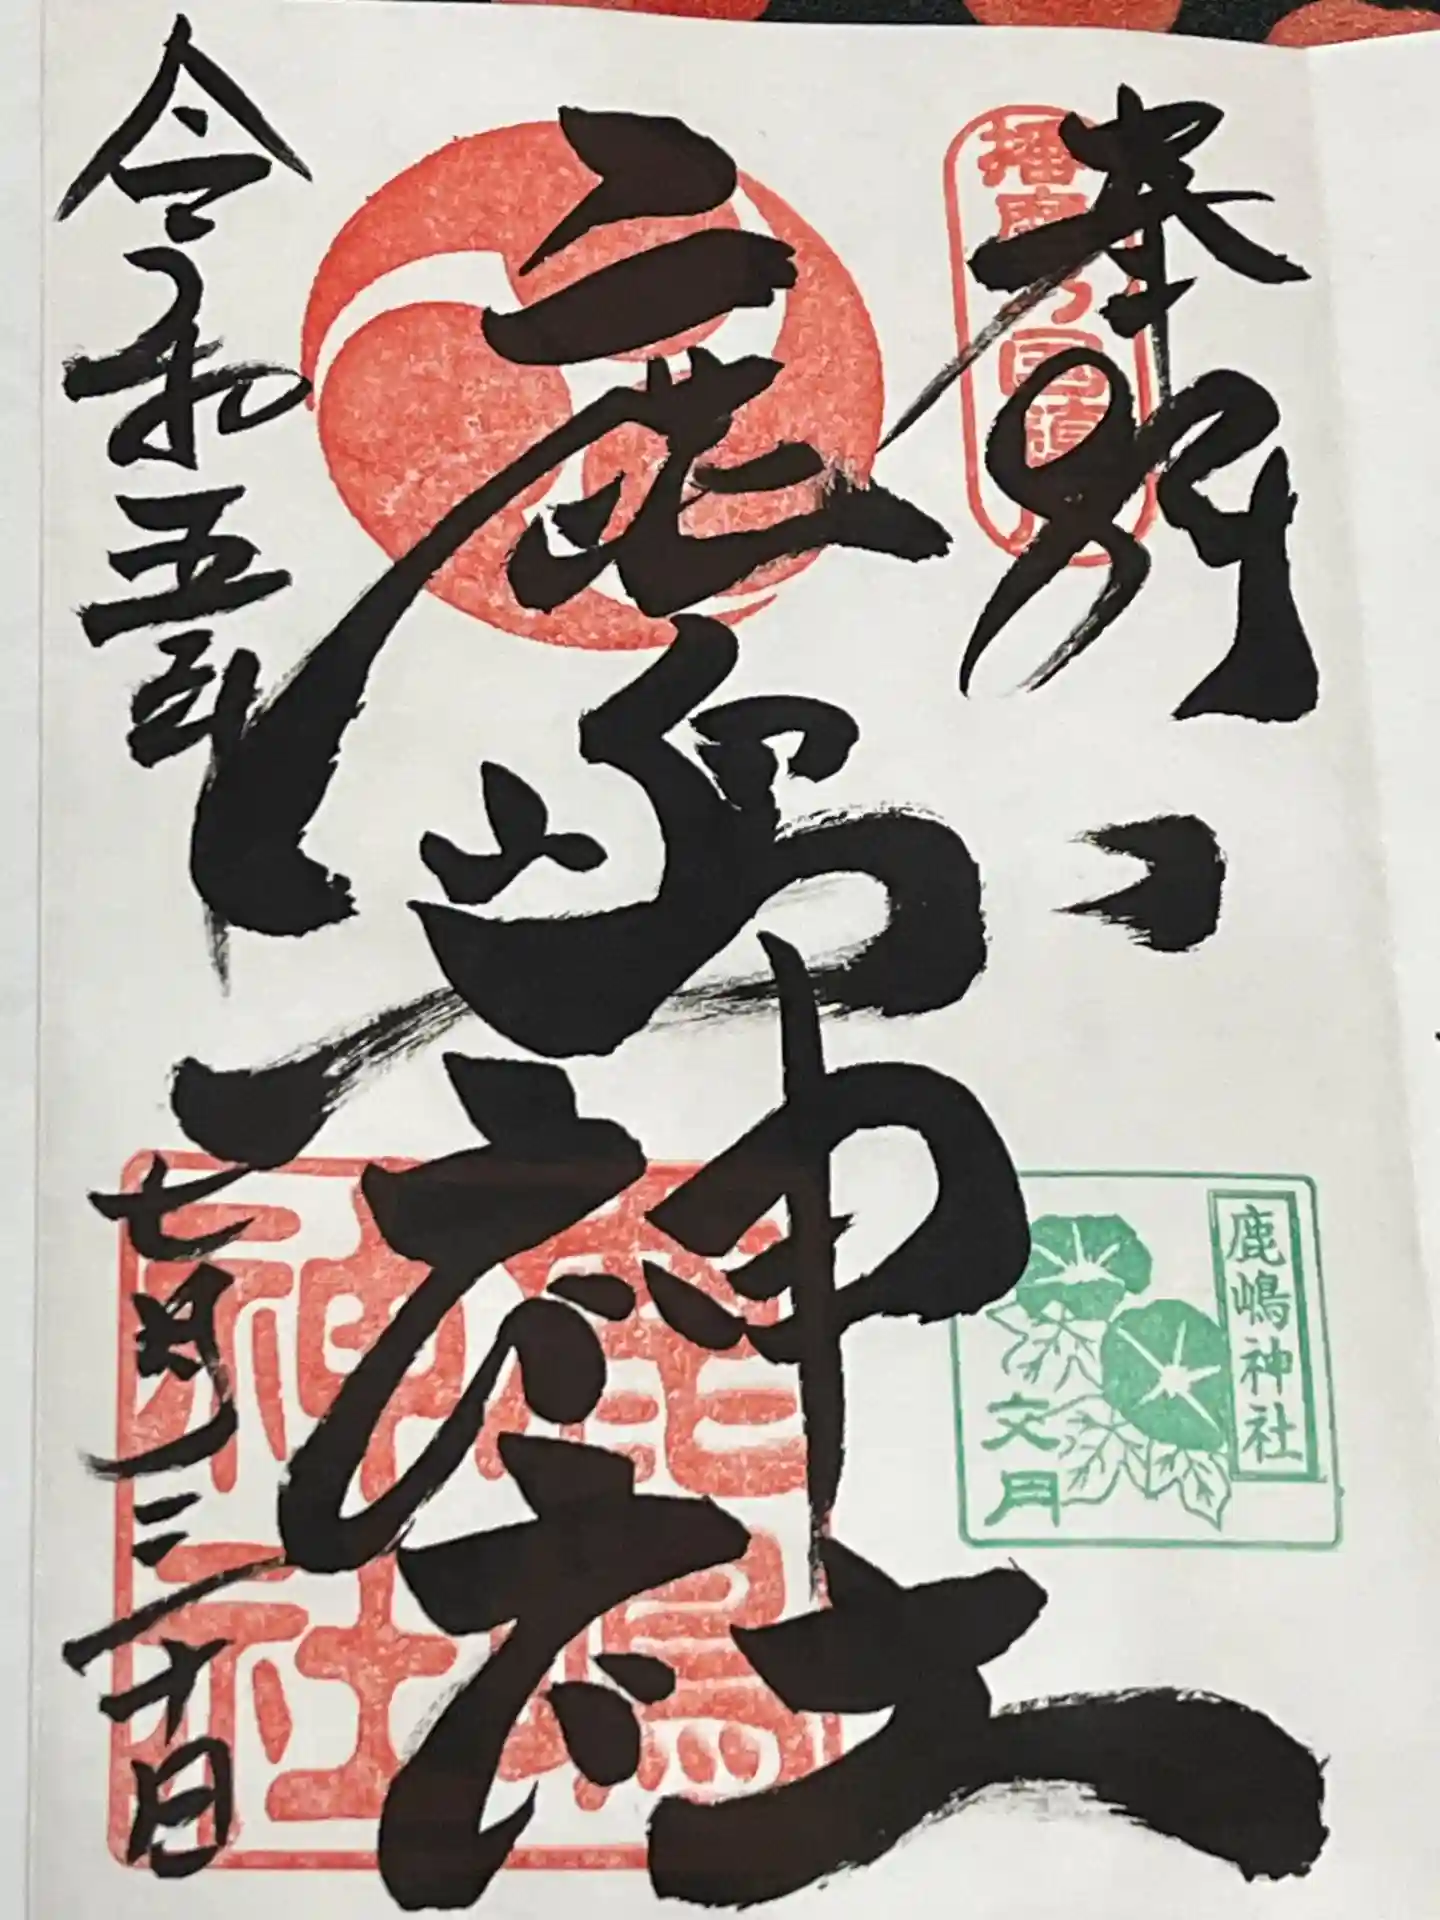 奉拝
播磨の国
鹿嶋神社
鹿嶋神社
鹿嶋神社
文月
令和五年
七月三十日